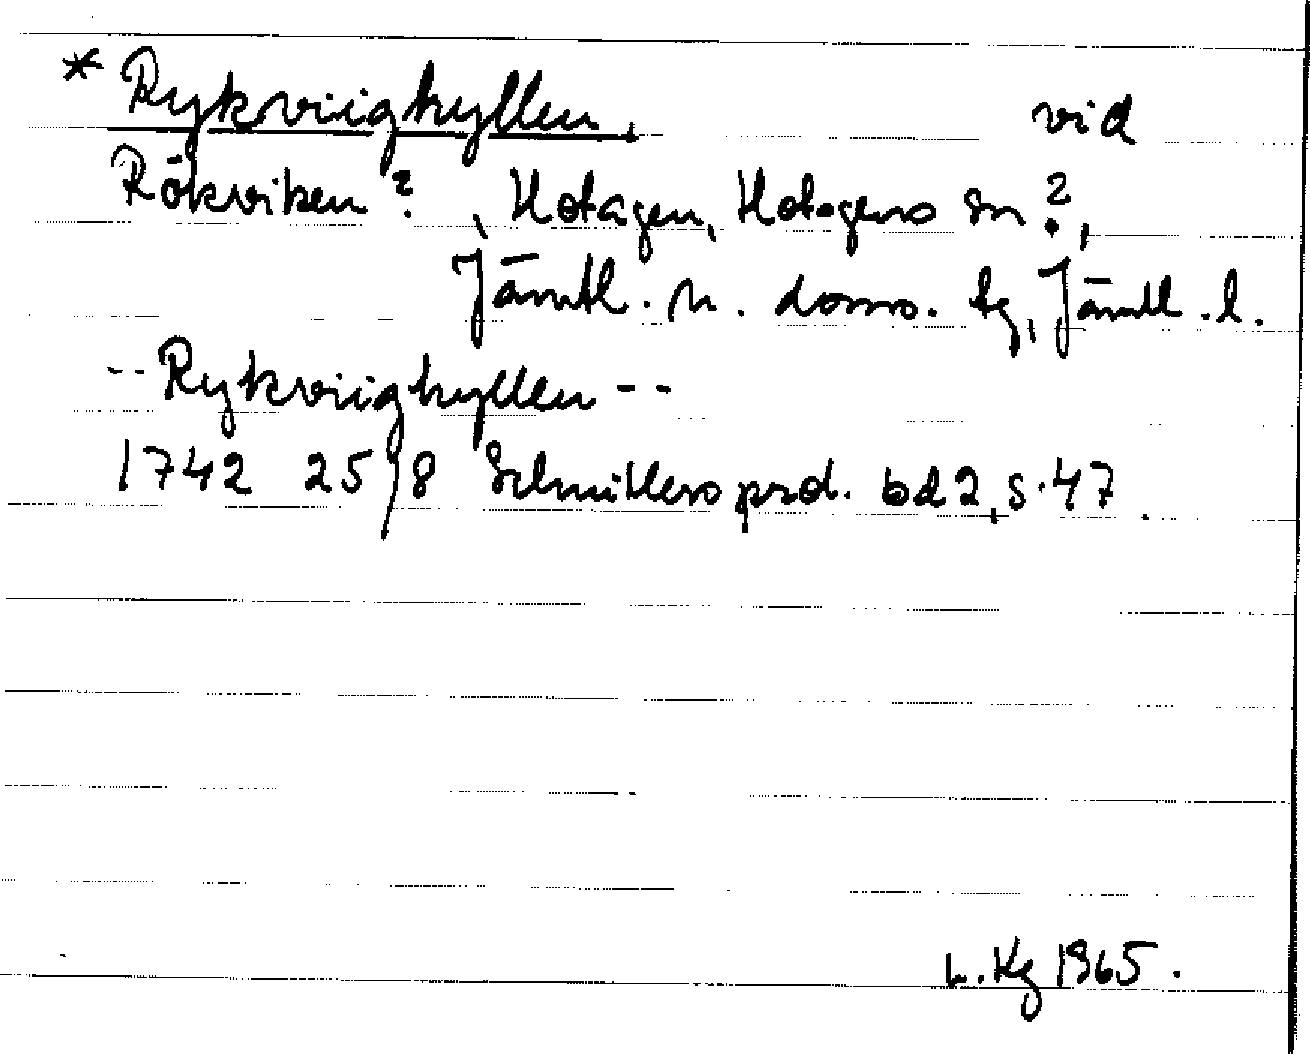 * Rykviighyllen, vid
Rökviken?, Hotagen, Hotagens sn?,
Jämtl. n. doms. tg, Jämtl. l.
-- Rykviighyllen --
1742 25/8 Schnitlers prot. bd 2, s. 47.
L. Kg 1965.